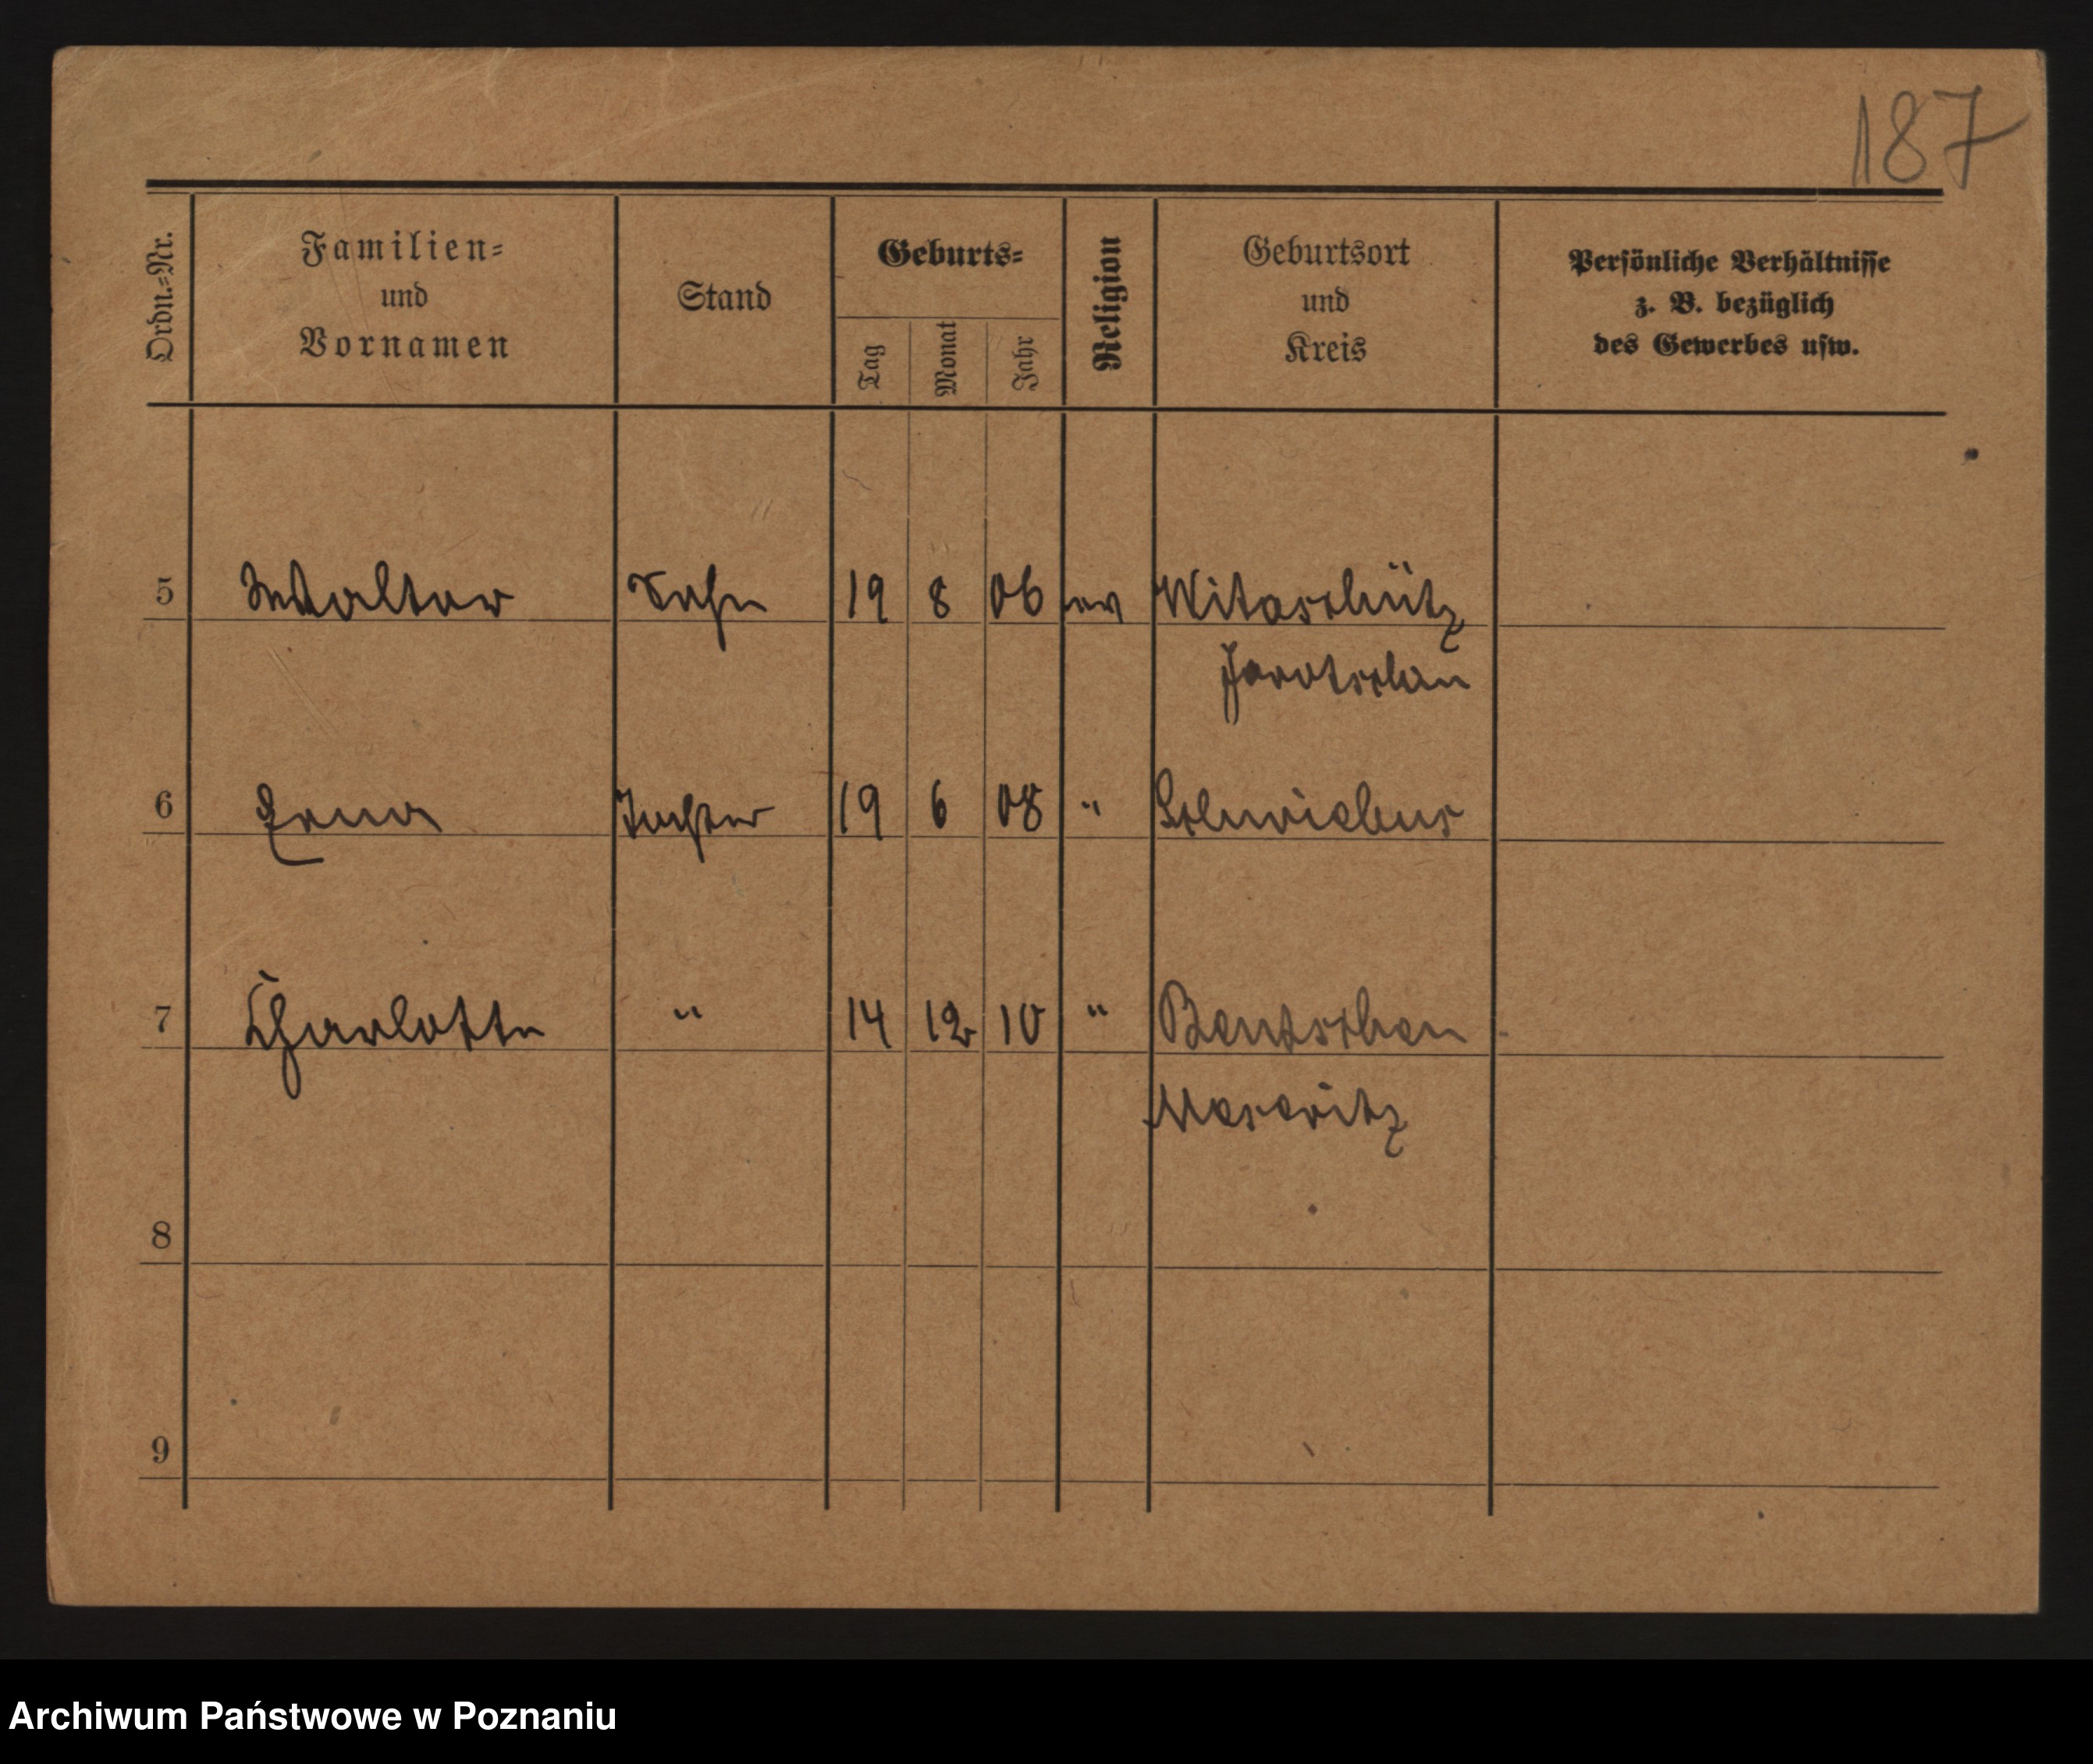 187
Ordn.=Nr.
Familien=
und
Vornamen
Stand
Geburts=
Tag
Monat
Jahr
Religion
Geburtsort
und
Kreis
Persönliche Verhältnisse
z. B. bezüglich
des Gewerbes usw.
5 Walter Sohn 19 8 06 ev Witaschütz
Jarotschin
6 Erna Tochter 19 6 08 " Schwiebus
7 Charlotte " 14 12 10 " Bentschen
Meseritz
8
9
Archiwum Państwowe w Poznaniu